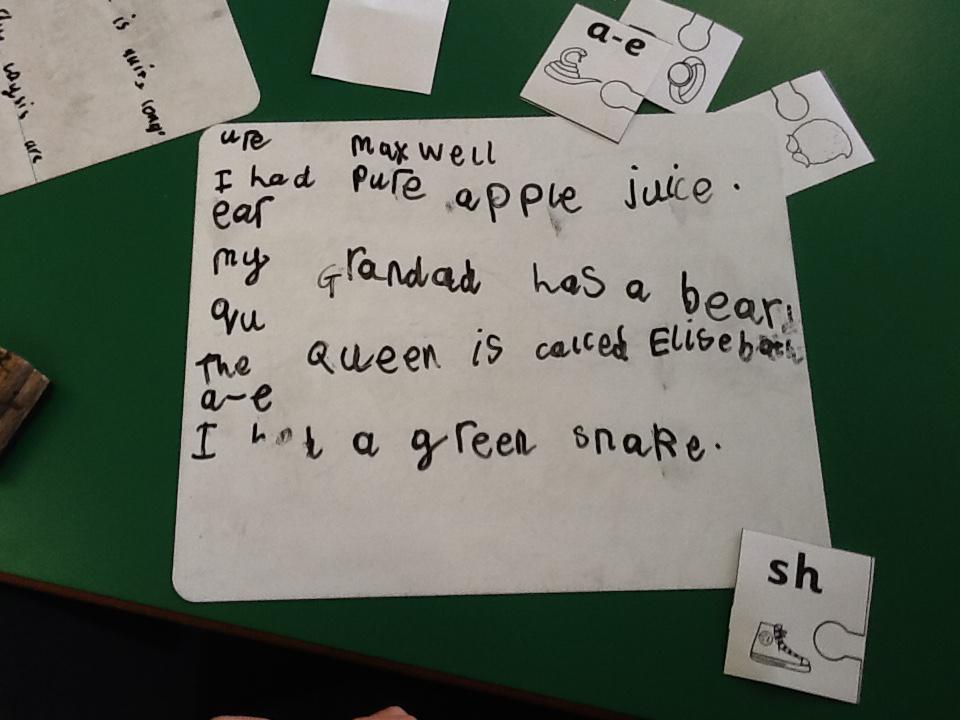 is quite long
are
a-e
ure maxwell
I had pure apple juice.
ear
my Grandad has a bear
qu
The Queen is called
a-e
I a green snake.
sh